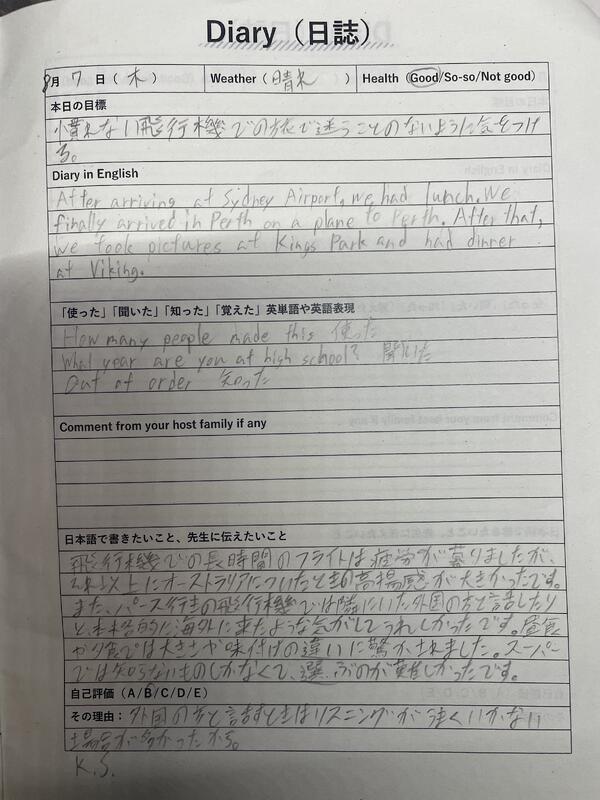 Diary（日誌）
8月 7 日（ 木 ） Weather（ 晴れ ） Health（Good/So-so/Not good）
本日の目標
慣れない飛行機での旅で迷うことのないように気をつけ
る。
Diary in English
After arriving at Sydney Airport, we had lunch. We
finally arrived in Perth on a plane to Perth. After that,
we took pictures at Kings Park and had dinner
at Viking.
「使った」「聞いた」「知った」「覚えた」英単語や英語表現
How many people made this 使った
What year are you at high school? 聞いた
Out of order 知った
Comment from your host family if any
日本語で書きたいこと、先生に伝えたいこと
飛行機での長時間のフライトは疲労が募りましたが、
それ以上にオーストラリアについたときの高揚感が大きかったです。
また、パース行きの飛行機では隣にいた外国の方と話したり
と、本格的に海外に来たような気がしてうれしかったです。昼食
や夕食では大きさや味付けの違いに驚かされました。スーパー
では知らないものしかなくて、選ぶのが難しかったです。
自己評価（A/B/C/D/E）
その理由：外国の方と話すときはリスニングが上手くいかない
場合が多かったから。
K.S.